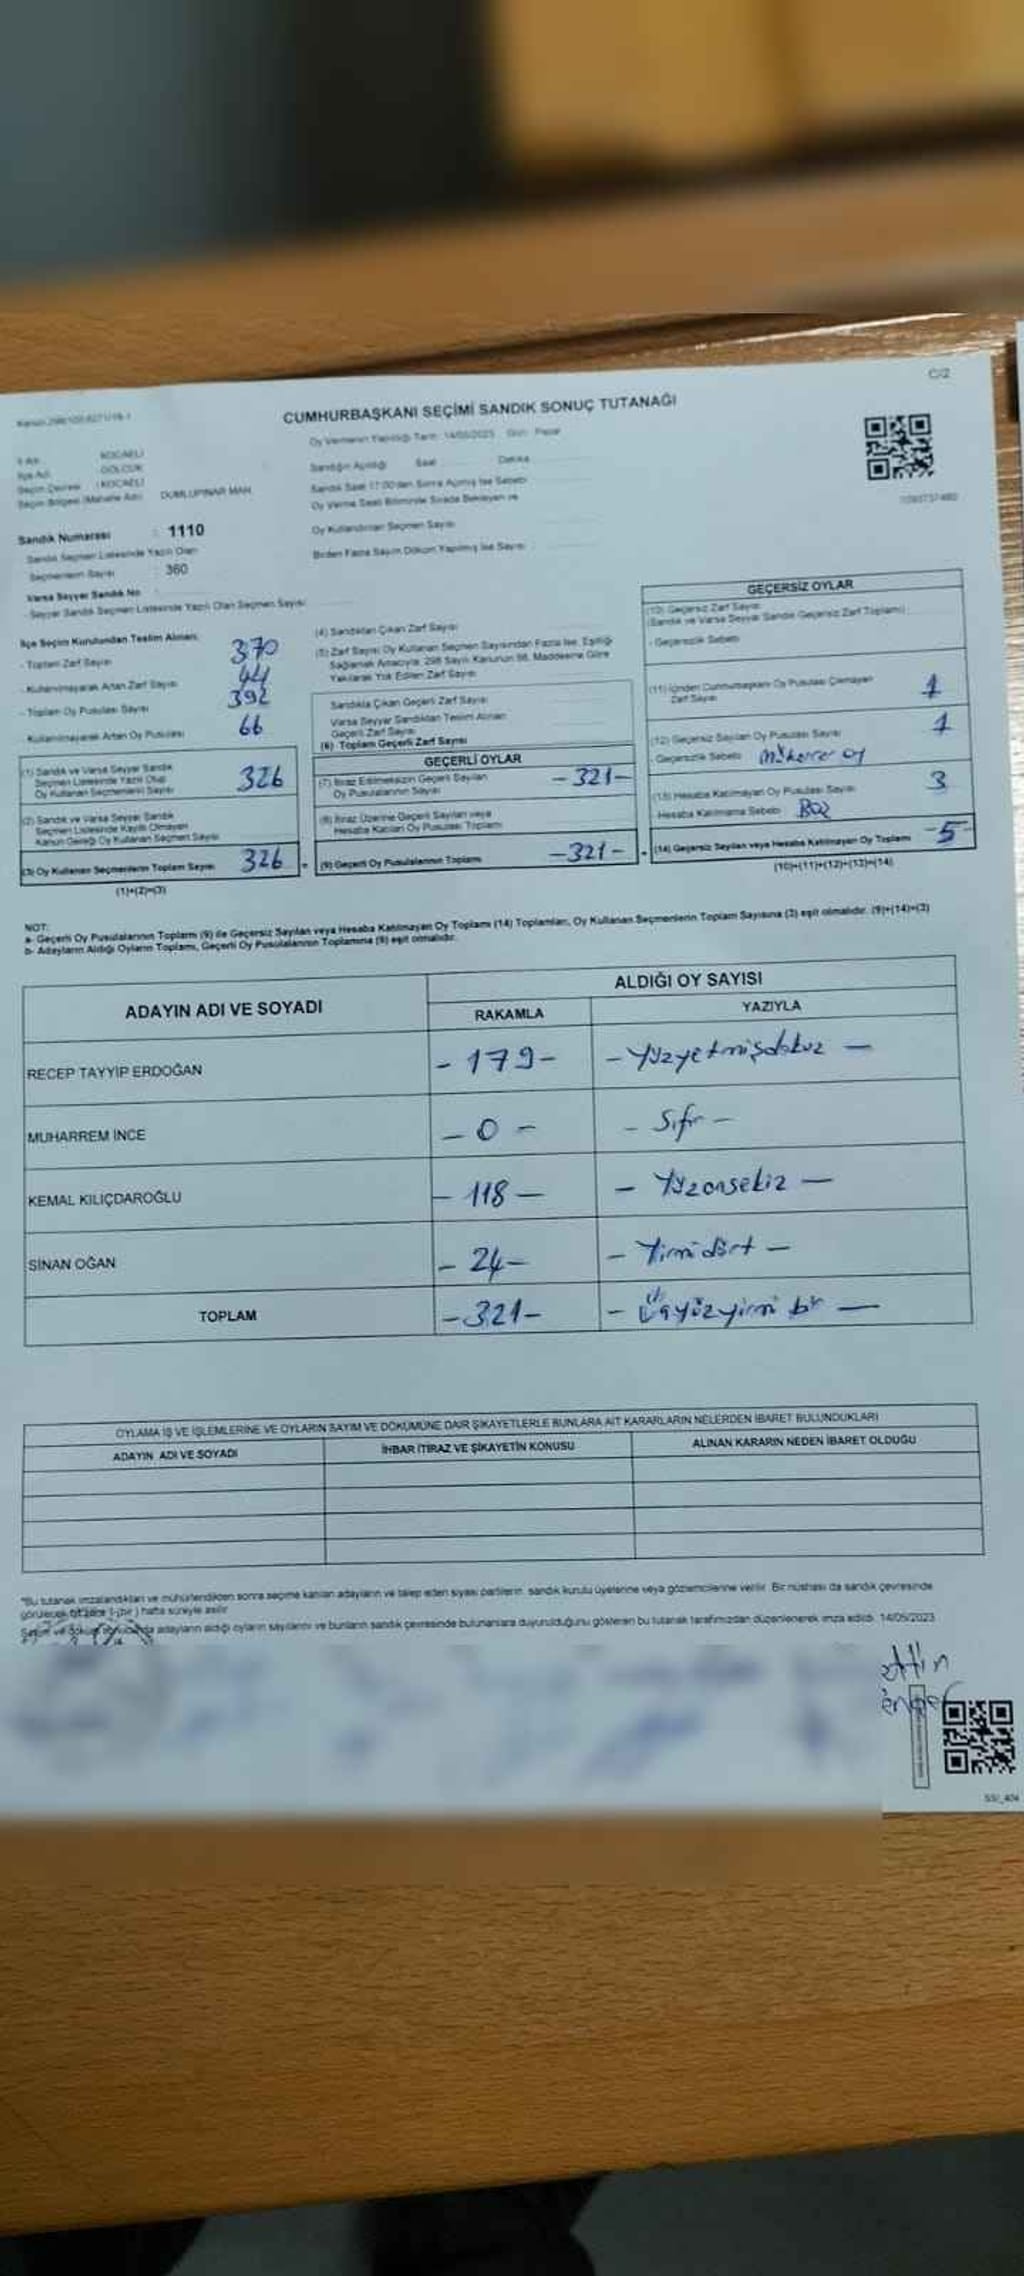 C/2
CUMHURBAŞKANI SEÇİMİ SANDIK SONUÇ TUTANAĞI
Oy Vermenin Yapıldığı Tarih: 14/05/2023 Gün: Pazar
KOCAELİ
GÖLCÜK
KOCAELİ
Seçim Bölgesi (Mahalle Adı) DUMLUPINAR MAH.
Sandığın Açıldığı Saat Dakika
Sandık Saat 17:00'den Sonra Açılmış İse Sebebi
Oy Verme Saati Bitiminde Sırada Bekleyen ve
Oy Kullandırılan Seçmen Sayısı
Birden Fazla Sayım Döküm Yapılmış İse Sayısı
Sandık Numarası : 1110
Sandık Seçmen Listesinde Yazılı Olan
Seçmenlerin Sayısı : 360
Varsa Seyyar Sandık No
- Seyyar Sandık Seçmen Listesinde Yazılı Olan Seçmen Sayısı
İlçe Seçim Kurulundan Teslim Alınan:
- Toplam Zarf Sayısı 370
- Kullanılmayarak Artan Zarf Sayısı 44
- Toplam Oy Pusulası Sayısı 392
- Kullanılmayarak Artan Oy Pusulası 66
(1) Sandık ve Varsa Seyyar Sandık
Seçmen Listesinde Yazılı Olup
Oy Kullanan Seçmenlerin Sayısı 326
(2) Sandık ve Varsa Seyyar Sandık
Seçmen Listesinde Kayıtlı Olmayan
Kanun Gereği Oy Kullanan Seçmen Sayısı
(3) Oy Kullanan Seçmenlerin Toplam Sayısı 326
(1)+(2)=(3)
(4) Sandıktan Çıkan Zarf Sayısı
(5) Zarf Sayısı Oy Kullanan Seçmen Sayısından Fazla İse, Eşitliği
Sağlamak Amacıyla, 298 Sayılı Kanunun 98. Maddesine Göre
Yakılarak Yok Edilen Zarf Sayısı
Sandıkta Çıkan Geçerli Zarf Sayısı
Varsa Seyyar Sandıktan Teslim Alınan
Geçerli Zarf Sayısı
(6) Toplam Geçerli Zarf Sayısı
GEÇERLİ OYLAR
(7) İtiraz Edilmeksizin Geçerli Sayılan
Oy Pusulalarının Sayısı -321-
(8) İtiraz Üzerine Geçerli Sayılan veya
Hesaba Katılan Oy Pusulası Toplamı
(9) Geçerli Oy Pusulalarının Toplamı -321-
GEÇERSİZ OYLAR
(10) Geçersiz Zarf Sayısı
(Sandık ve Varsa Seyyar Sandık Geçersiz Zarf Toplamı)
- Geçersizlik Sebebi
(11) İçinden Cumhurbaşkanı Oy Pusulası Çıkmayan
Zarf Sayısı 1
(12) Geçersiz Sayılan Oy Pusulası Sayısı 1
- Geçersizlik Sebebi Mükerrer oy
(13) Hesaba Katılmayan Oy Pusulası Sayısı 3
Hesaba Katılmama Sebebi Boş
(14) Geçersiz Sayılan veya Hesaba Katılmayan Oy Toplamı -5-
(10)+(11)+(12)+(13)=(14)
NOT:
a- Geçerli Oy Pusulalarının Toplamı (9) ile Geçersiz Sayılan veya Hesaba Katılmayan Oy Toplamı (14) Toplamları, Oy Kullanan Seçmenlerin Toplam Sayısına (3) eşit olmalıdır. (9)+(14)=(3)
b- Adayların Aldığı Oyların Toplamı, Geçerli Oy Pusulalarının Toplamına (9) eşit olmalıdır.
ADAYIN ADI VE SOYADI
ALDIĞI OY SAYISI
RAKAMLA YAZIYLA
RECEP TAYYİP ERDOĞAN -179- -Yüzyetmişdokuz-
MUHARREM İNCE -0- -Sıfır-
KEMAL KILIÇDAROĞLU -118- -Yüzonsekiz-
SİNAN OĞAN -24- -Yirmidört-
TOPLAM -321- -Üçyüzyirmi bir-
OYLAMA İŞ VE İŞLEMLERİNE VE OYLARIN SAYIM VE DÖKÜMÜNE DAİR ŞİKAYETLERLE BUNLARA AİT KARARLARIN NELERDEN İBARET BULUNDUKLARI
ADAYIN ADI VE SOYADI İHBAR İTİRAZ VE ŞİKAYETİN KONUSU ALINAN KARARIN NEDEN İBARET OLDUĞU
*Bu tutanak imzalandıktan ve mühürlendikten sonra seçime katılan adayların ve talep eden siyasi partilerin, sandık kurulu üyelerine veya gözlemcilerine verilir. Bir nüshası da sandık çevresinde
görülecek bir yere 1 (bir) hafta süreyle asılır.
adayların aldığı oyların sayılarını ve bunların sandık çevresinde bulunanlara duyurulduğunu gösteren bu tutanak tarafımızdan düzenlenerek imza edildi. 14/05/2023